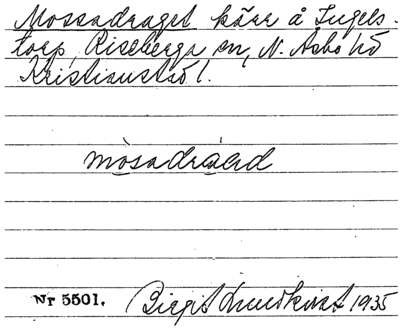 Mossadraget kärr å Ingels-
torp, Riseberga sn, N. Åsbo hd
Kristianstad l.
mòsadráɛd
Nr 5501. Birgit Lundkvist 1935